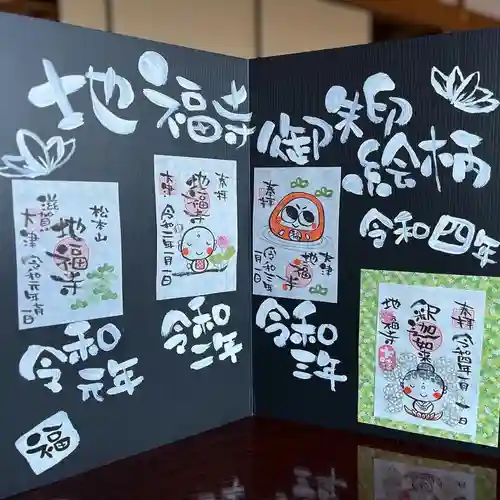 地福寺
御朱印
絵柄
令和四年
松本山
地福寺
滋賀
大津
令和元年
奉拝
地福寺
大津
令和二年一月一日
奉拝
大津
地福寺
令和三年
一月一日
奉拝
令和四年一月一日
釈迦如来
地福寺
令和
元年
令和
二年
令和
三年
福